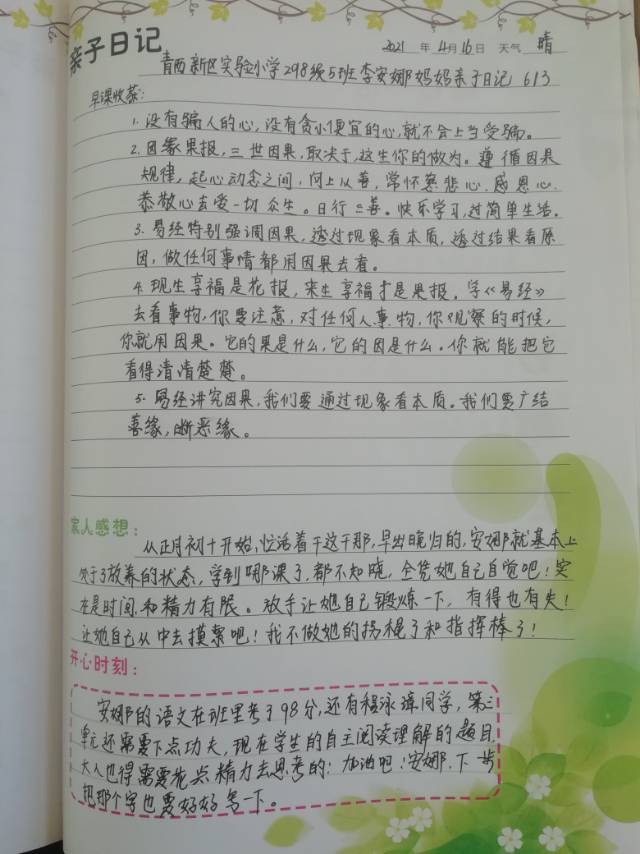 亲子日记
2021 年 4月16日 天气 晴
青西新区实验小学298级5班李安娜妈妈亲子日记 613
早课收获:
1. 没有骗人的心,没有贪小便宜的心,就不会上当受骗。
2. 因缘果报,三世因果,取决于,这生你的做为。遵循因果
规律,起心动念之间,向上从善,常怀慈悲心.感恩心.
恭敬心去爱一切众生。日行一善。快乐学习,过简单生活。
3. 易经特别强调因果,透过现象看本质,透过结果看原
因,做任何事情都用因果去看。
4. 现生享福是花报,来生享福才是果报。学《易经》
去看事物,你要注意,对任何人.事.物,你观察的时候,
你就用因果。它的果是什么,它的因是什么。你就能把它
看得清清楚楚。
5. 易经讲究因果,我们要通过现象看本质。我们要广结
善缘,断恶缘。
家人感想:
从正月初十开始,忙活着干这干那,早出晚归的,安娜就基本上
处于了放养的状态,学到哪课了,都不知晓,全凭她自己自觉吧!实
在是时间和精力有限。放手让她自己锻炼一下,有得也有失!
让她自己从中去摸索吧!我不做她的拐棍了和指挥棒了!
开心时刻:
安娜的语文在班里考了98分,还有程泳 同学,第二
单元还需要下点功夫,现在学生的自主阅读理解的题目,
大人也得需要花点精力去思考的!加油吧!安娜.下一步
把那个字也要好好写一下。